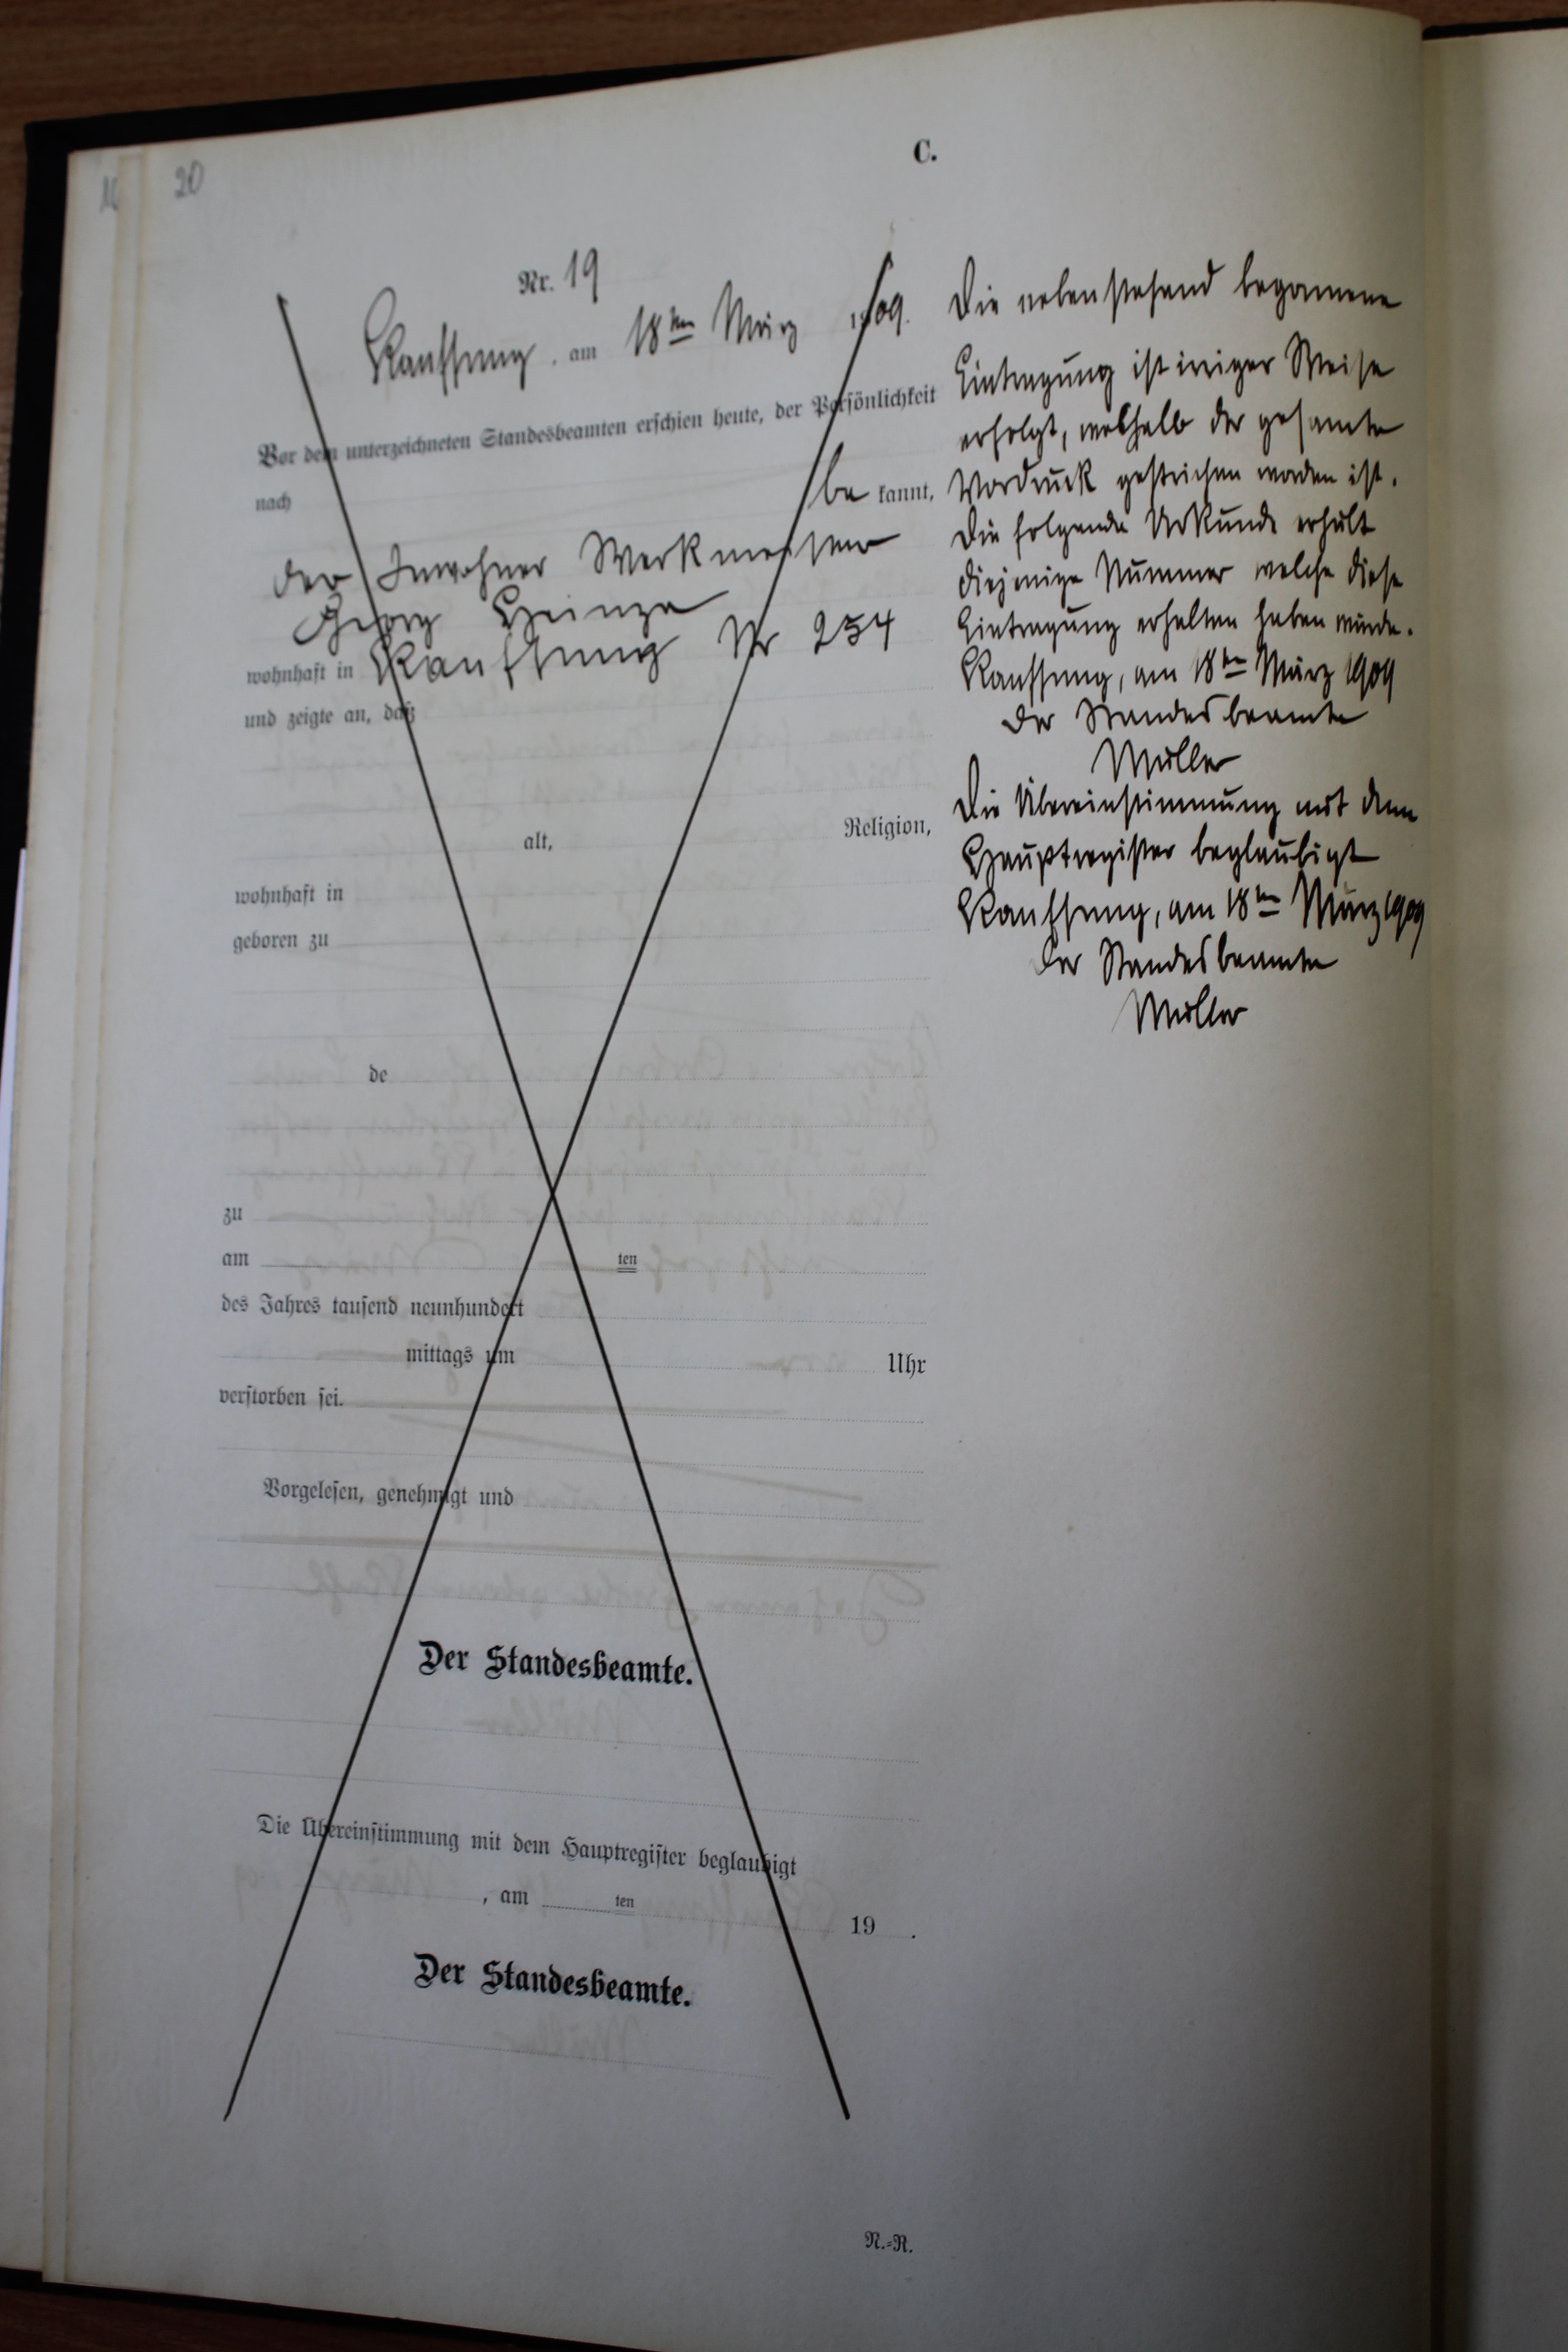 20
C.
Nr. 19
Kauffung, am 18ten März 1909.
Vor dem unterzeichneten Standesbeamten erschien heute, der Persönlichkeit
nach
be kannt,
der Inwohner Werkmeister
Georg Heinze
wohnhaft in Kauffung Nr 254
und zeigte an, daß
alt, Religion,
wohnhaft in
geboren zu
de
zu
am ten
des Jahres tausend neunhundert
mittags um Uhr
verstorben sei.
Vorgelesen, genehmigt und
Der Standesbeamte.
Die Übereinstimmung mit dem Hauptregister beglaubigt
, am ten 19 .
Der Standesbeamte.
N.-R.
Die nebenstehend begonnene
Eintragung ist irriger Weise
erfolgt, weshalb der gesamte
Vordruck gestrichen worden ist.
Die folgende Urkunde erhält
diejenige Nummer welche diese
Eintragung erhalten haben würde.
Kauffung, am 18ten März 1909
Der Standesbeamte
Müller
Die Übereinstimmung mit dem
Hauptregister beglaubigt
Kauffung, am 18ten März 1909
Der Standesbeamte
Müller